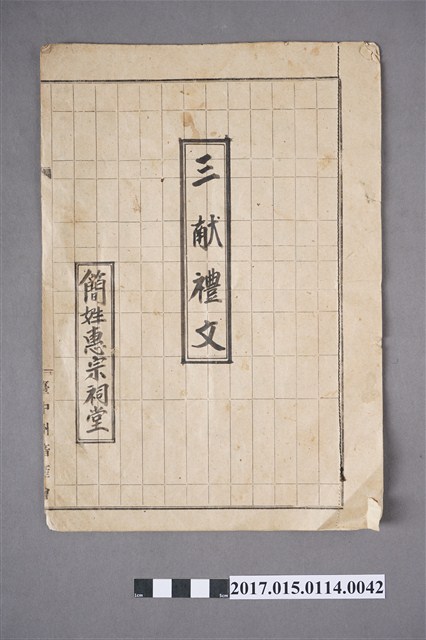 三献禮文
簡姓惠宗祠堂
2017.015.0114.0042